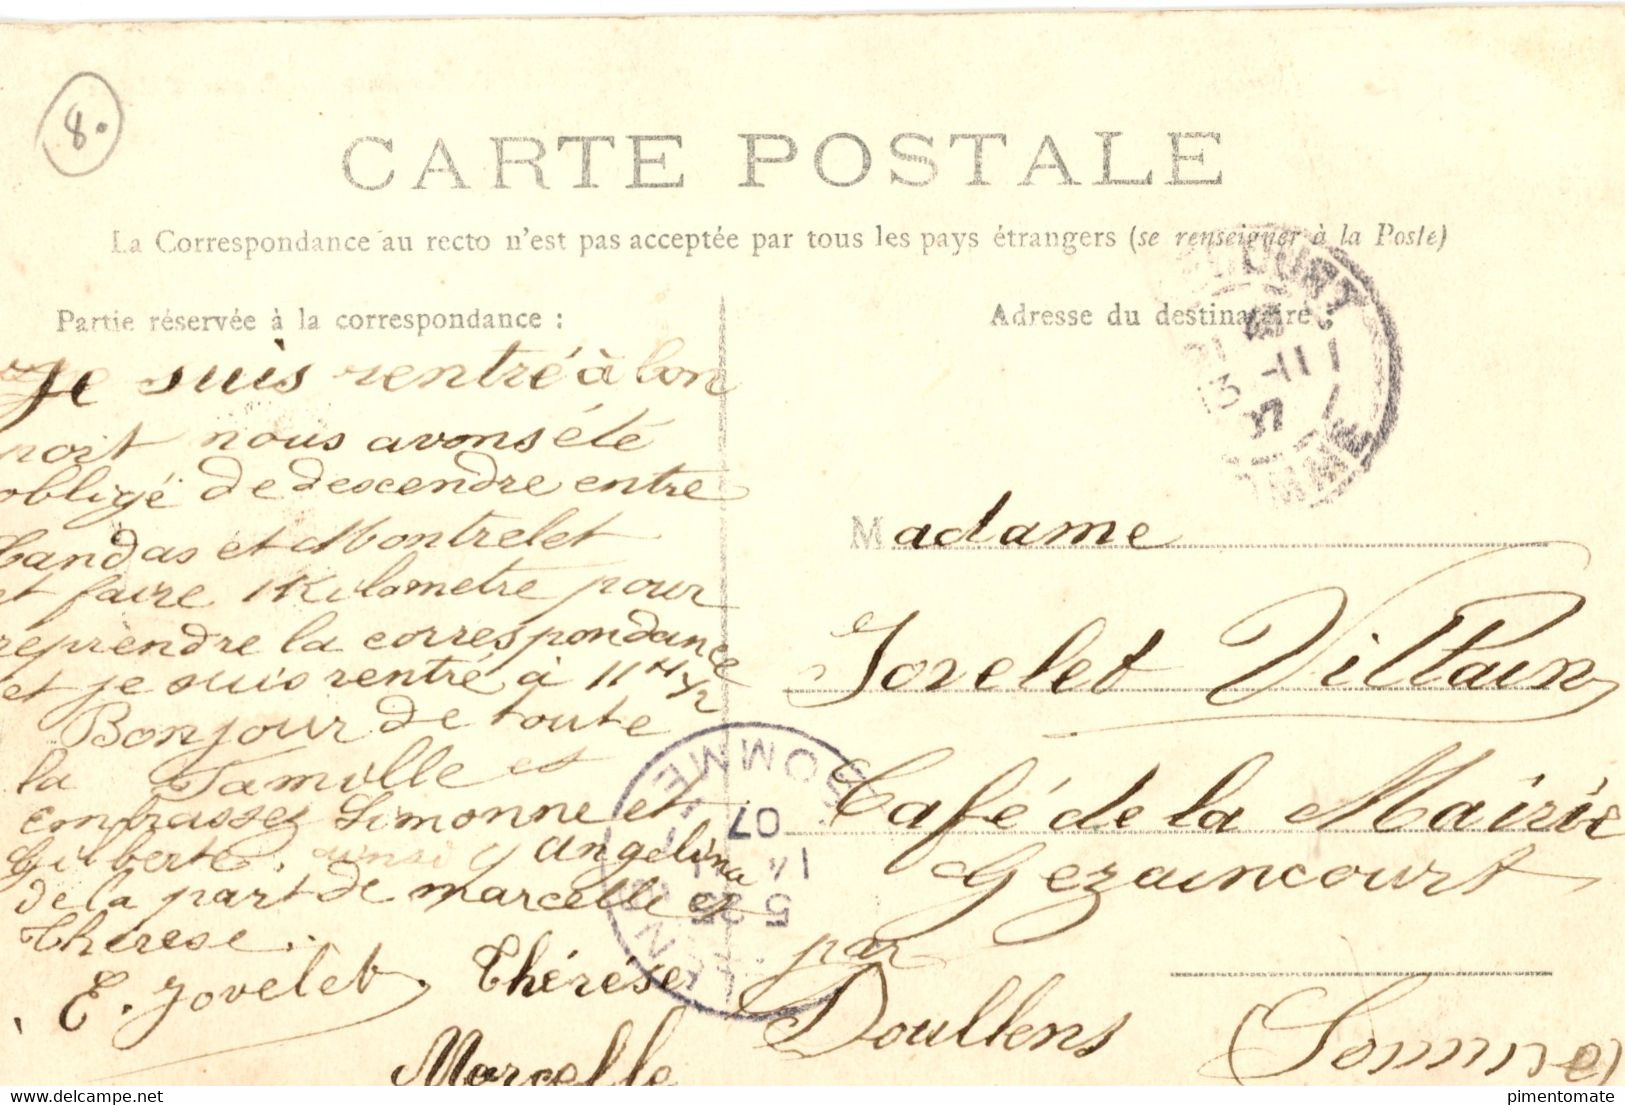 8.
CARTE POSTALE
La Correspondance au recto n'est pas acceptée par tous les pays étrangers (se renseigner à la Poste)
Partie réservée à la correspondance :
Je suis rentré à bon
port nous avons été
obligé de descendre entre
Candas et Montrelet
et faire 1 Kilometre pour
reprendre la correspondance
et je suis rentré à 11 H 1/2
Bonjour de toute
la Famille et
embrassez Simonne et
Gilberte. ainsi q Angelina
de la part de marcelle et
Thérese.
E. Jovelet Thérése
Marcelle
Adresse du destinataire :
Madame
Jovelet Villain
Café de la Mairie
Gezaincourt
par
Doullens (Somme)
COURT
13 -11
07
SOMME
SOMME
07
14
5 25
delcampe.net
pimentomate